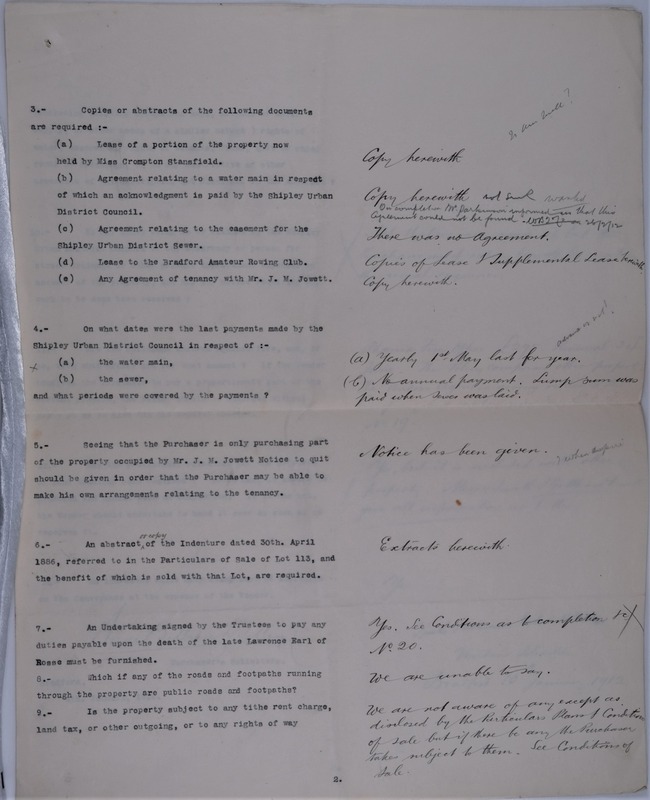 3.- Copies or abstracts of the following documents
are required :-
(a) Lease of a portion of the property now
held by Miss Crompton Stansfield.
Copy herewith
(b) Agreement relating to a water main in respect
of which an acknowledgment is paid by the Shipley Urban
District Council.
Copy herewith not sent
On completion Mr. Parkinson informed us that this
Agreement could not be found
(c) Agreement relating to the easement for the
Shipley Urban District Sewer.
There was no Agreement.
(d) Lease to the Bradford Amateur Rowing Club.
Copies of Lease & Supplemental Lease herewith
(e) Any Agreement of tenancy with Mr. J. M. Jowett.
Copy herewith.
4.- On what dates were the last payments made by the
Shipley Urban District Council in respect of :-
x (a) the water main,
(b) the sewer,
and what periods were covered by the payments ?
(a) Yearly 1st May last for year.
(b) No annual payment. Lump sum was
paid when sewer was laid.
5.- Seeing that the Purchaser is only purchasing part
of the property occupied by Mr. J. M. Jowett Notice to quit
should be given in order that the Purchaser may be able to
make his own arrangements relating to the tenancy.
Notice has been given.
6.- An abstract or copy of the Indenture dated 30th. April
1886, referred to in the Particulars of Sale of Lot 113, and
the benefit of which is sold with that Lot, are required.
Extracts herewith
7.- An Undertaking signed by the Trustees to pay any
duties payable upon the death of the late Lawrence Earl of
Rosse must be furnished.
Yes. See Conditions as to completion &c
No 20.
8.- Which if any of the roads and footpaths running
through the property are public roads and footpaths?
We are unable to say.
9.- Is the property subject to any tithe rent charge,
land tax, or other outgoing, or to any rights of way
We are not aware of any except as
disclosed by the Particulars Plans & Conditions
of Sale but if there be any the Purchaser
takes subject to them. See Conditions of
Sale.
2.